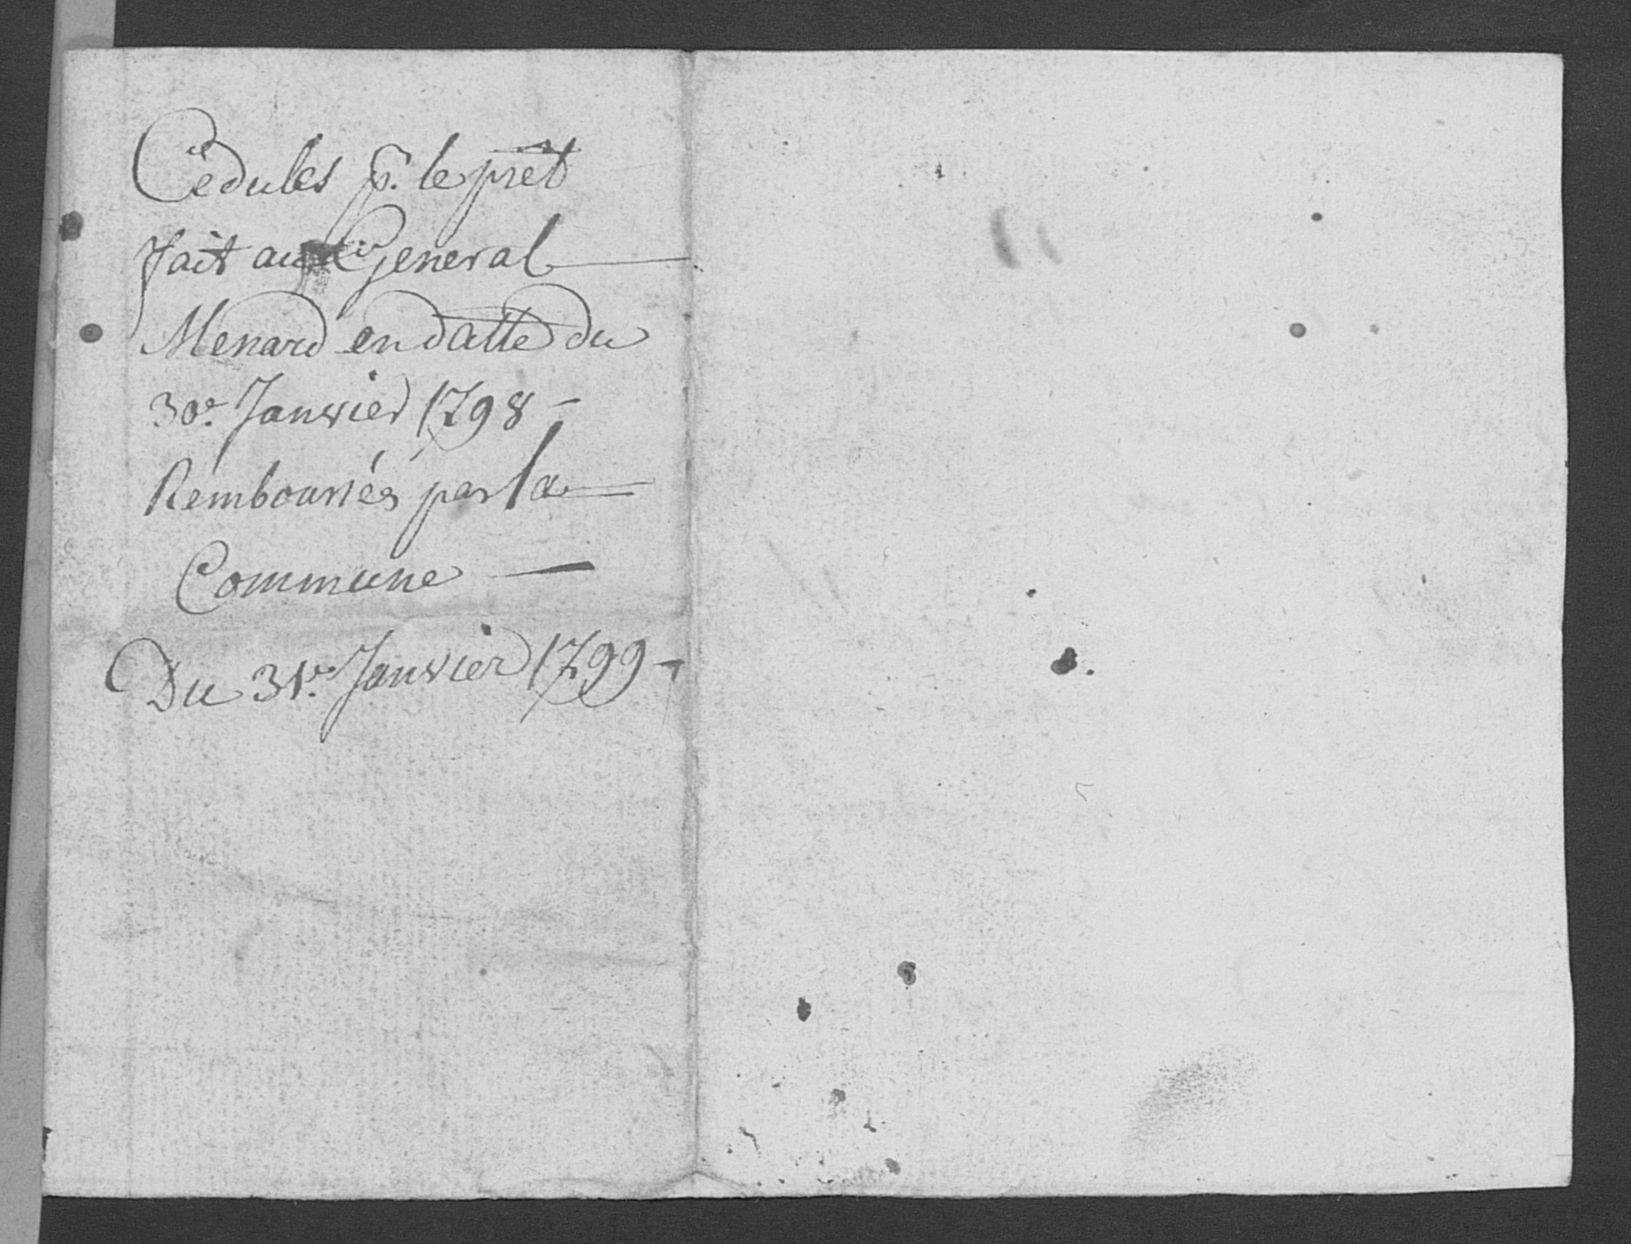 Cédules p. le prêt
fait au General
Menard en datte du
30e. Janvier 1798 -
Remboursés par la
Commune
Du 31e. Janvier 1799 -